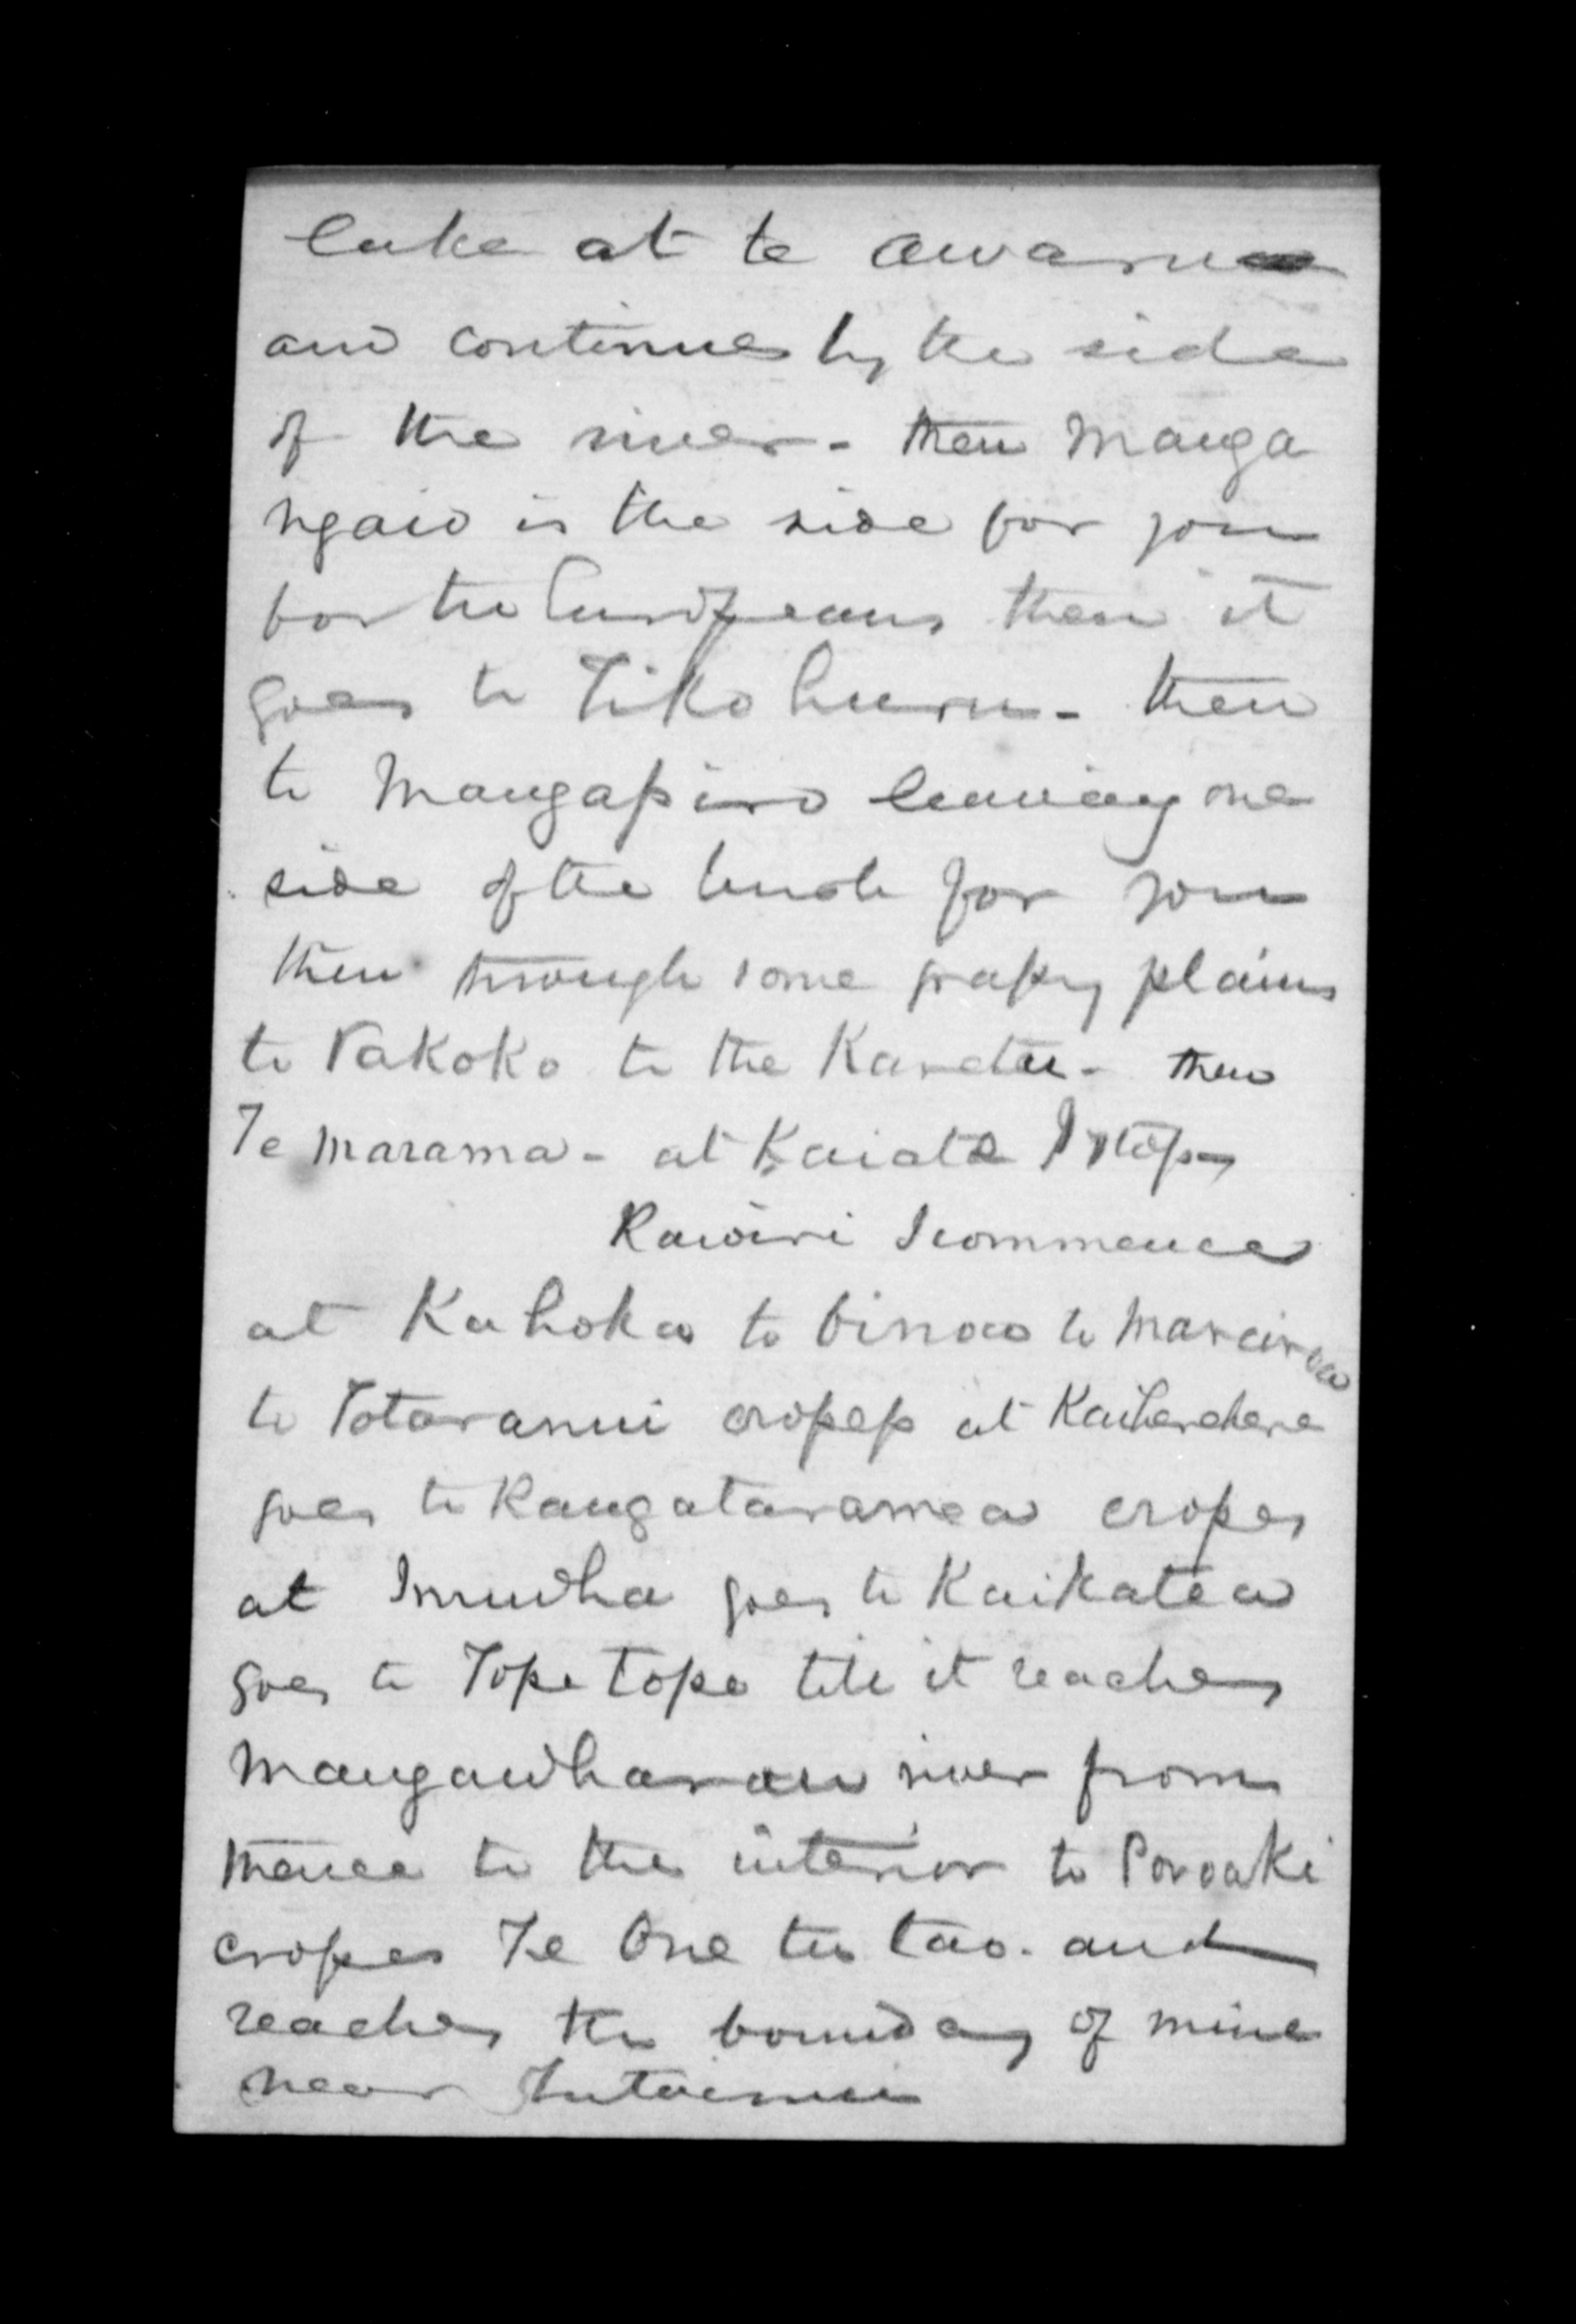 lake at te Awarua
and continues by the side
of the river - then Manga
ngaio is the side for you
for the Europeans then it
goes to Tikohuru - then
to Mangapiro leaving one
side of the bush for you
then through some grassy plains
to Pakoko to the Karetu - then
Te Marama - at Kaiata I stop
Rawiri I commence
at Kahoka to Oinoao to Maraeroa
to Totaranui crosses at Kaiherehere
goes to Rangataramea crosses
at Imuwha goes to Kaikatea
goes to Tope tope till it reaches
Mangawharau river from
thence to the interior to Poroaki
crosses Te One tu tao. and
reaches the boundary of mine
near